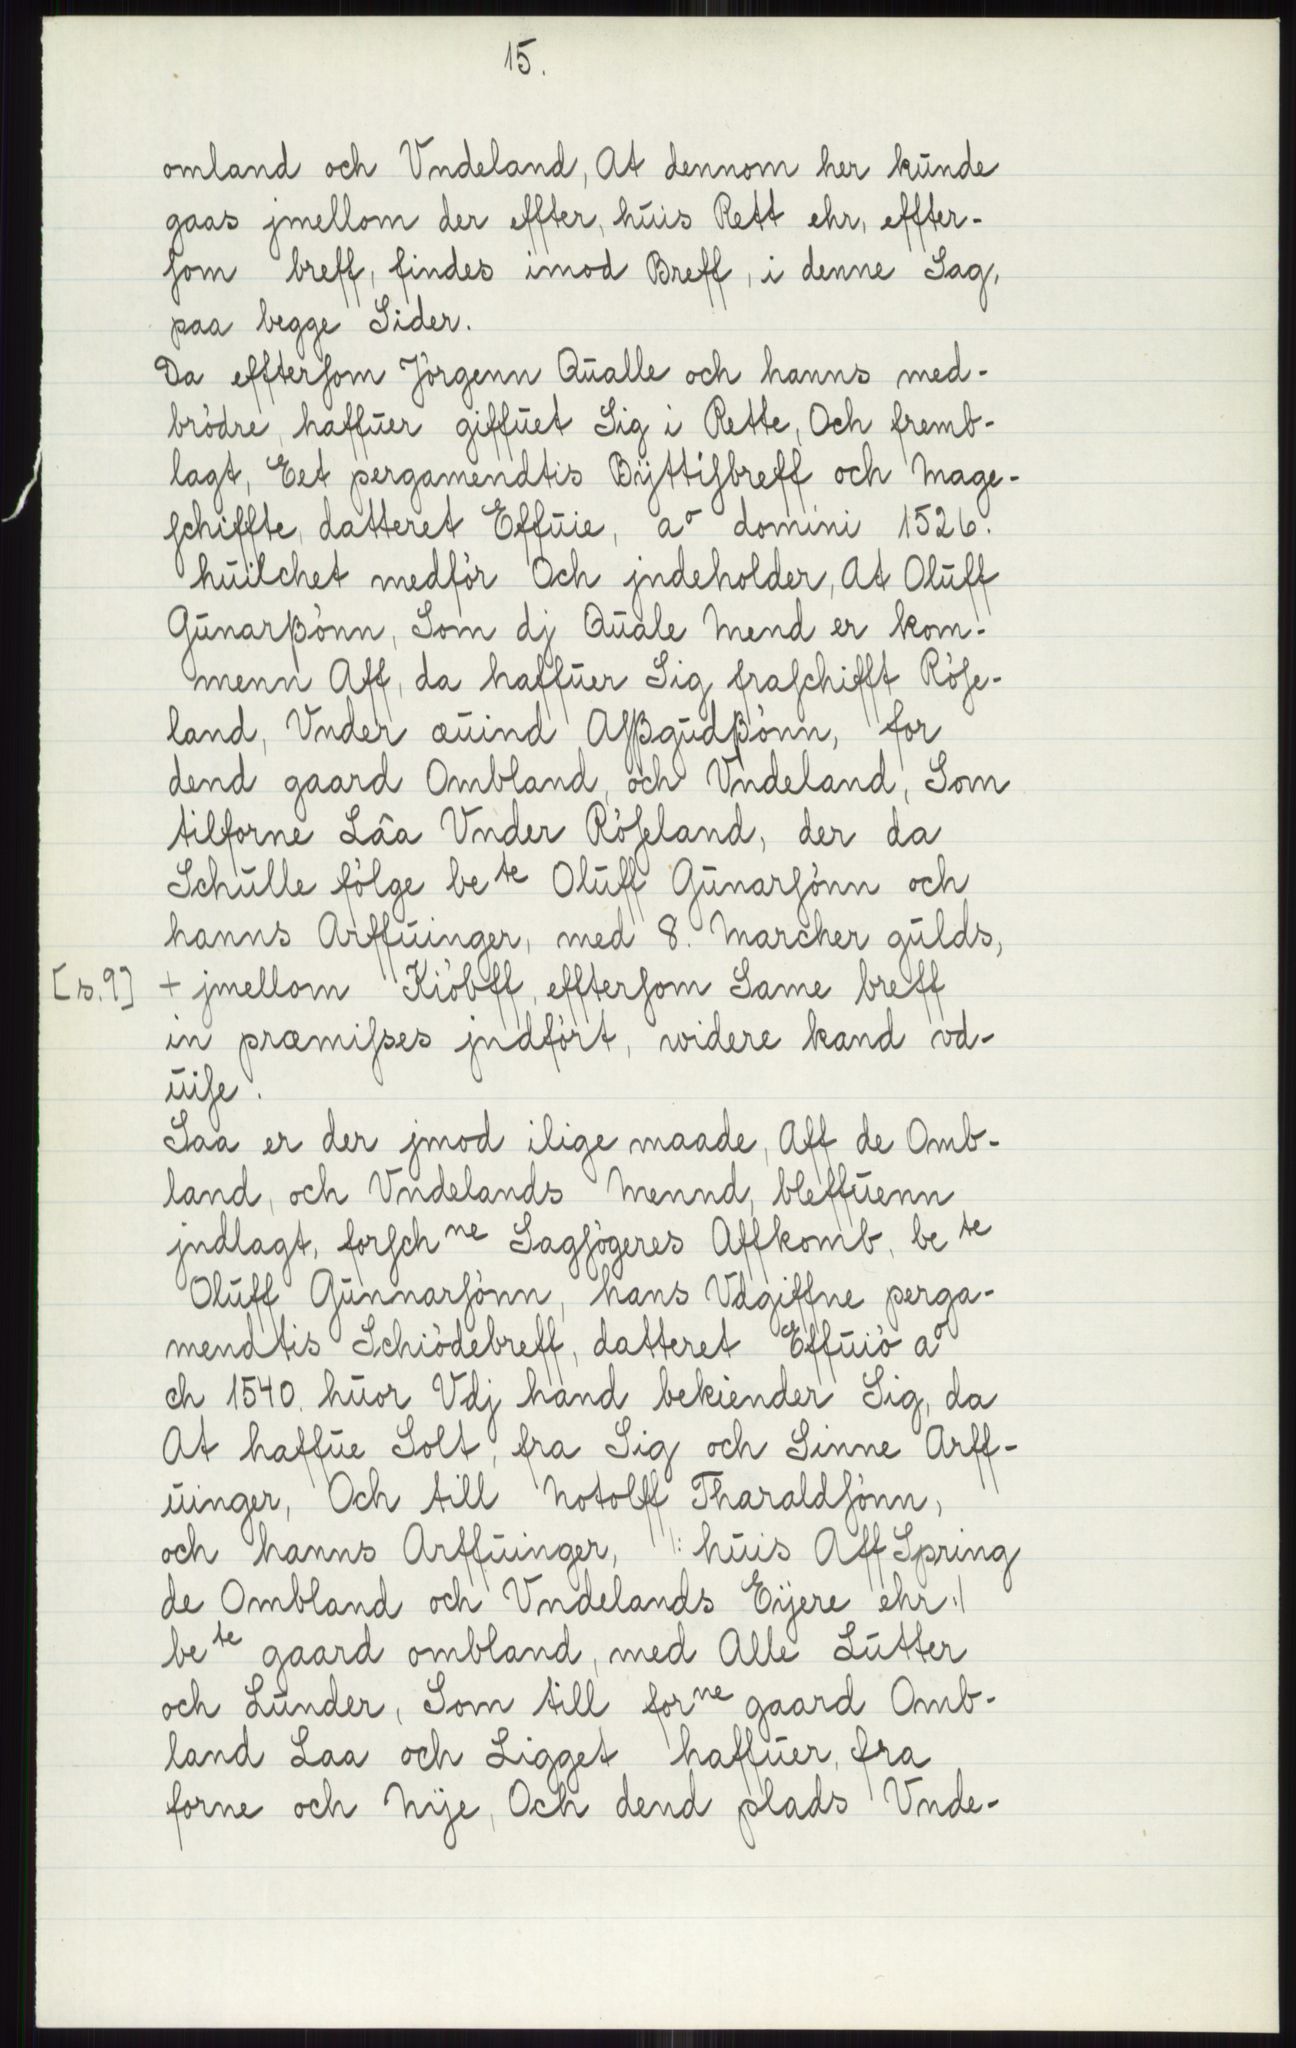 15.
omland och Vndeland, At dennom her kūnde
gaas jmellom der effter, hūis Rett ehr, effter-
ſom breff, findes imod Breff, i denne Sag,
paa begge Sider.
Da effterſom Jörgenn Qūalle och hanns med-
brödre, haffūer giffūet Sig i Rette, Och fremb-
lagt, Eet pergamendtis Bÿttiſbreff och Mage-
ſchiffte, datteret Effūie, aº domini 1526.
hūilchet medför Och jndeholder, At Olūff
Gūnarßönn, Som dj Qūale Mend er kom-
menn Aff, da haffūer Sig fraſchifft Röſe-
land, Vnder æūind Aſßgūdßönn, for
dend gaard Ombland, och Vndeland, Som
tilforne Lâa Vnder Röſeland, der da
Schūlle fölge be te Olūff Gūnarſönn och
hanns Arffūinger, med 8. Marcher gūlds,
[s.9] + jmellom Kiöbff, effterſom Same breff
in præmiſses jndfört, widere kand vd-
ūiſe.
Saa er der jmod ilige maade, Aff de Omb-
land, och Vndelands Mennd, bleffūenn
jndlagt, forſch ne Sagſögeres Affkomb, be te
Olūff Gūnnarſönn, hans Vdgiffne perga-
mendtis Schiödebreff, datteret Effūiö aº
ch 1540. hūor Vdj hand bekiender Sig, da
At haffūe Solt, fra Sig och Sinne Arff-
ūinger, Och till Notolff Tharaldſönn,
och hanns Arffūinger, /: hūis Aff Spring
de Ombland och Vndelands Eÿere ehr :/
be te gaard ombland, med Alle Lūtter
och Lūnder, Som till for ne gaard Omb-
land Laa och Ligget haffūer, fra
forne och Nÿe, Och dend plads Vnde-